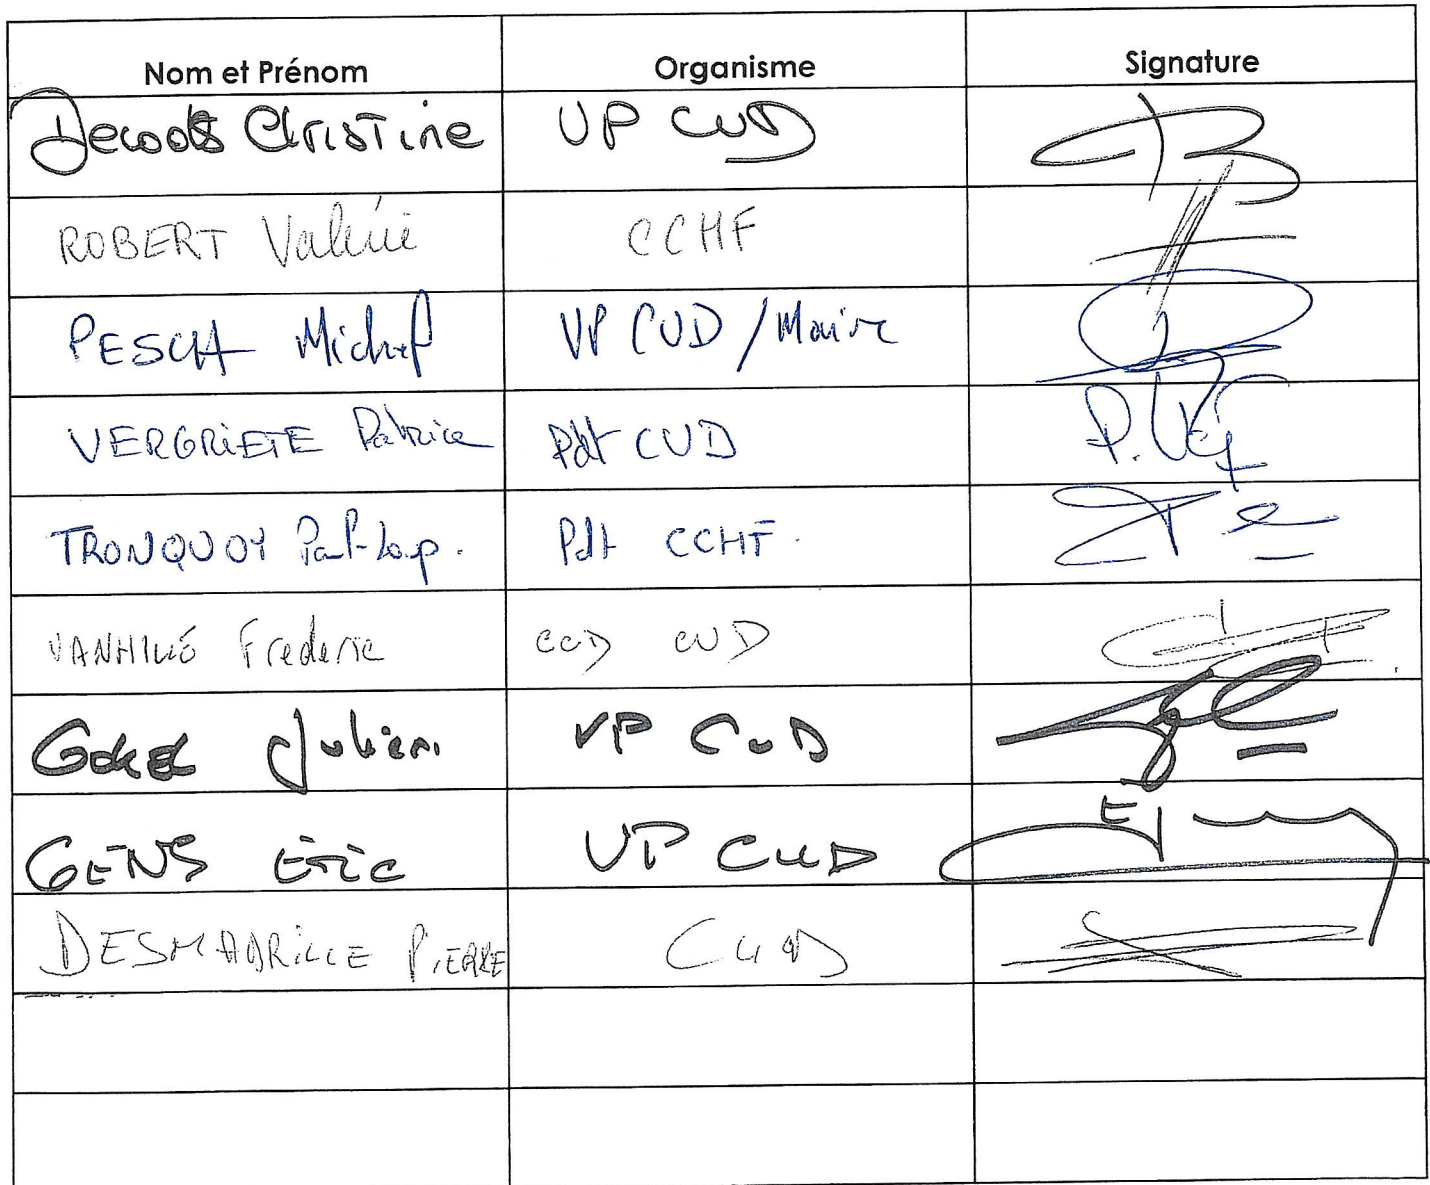 Nom et Prénom Organisme Signature
Decodts Christine VP CUD
ROBERT Valérie CCHF
PESCH Michel VP CUD / Maire
VERGRIETE Patrice Pdt CUD P. Veg
TRONQUOY Paul-Loup. Pdt CCHF.
Frederic CUD
Gokel Julien VP CUD
GENS Eric VP CUD
DESMADRILLE PIERRE CUD